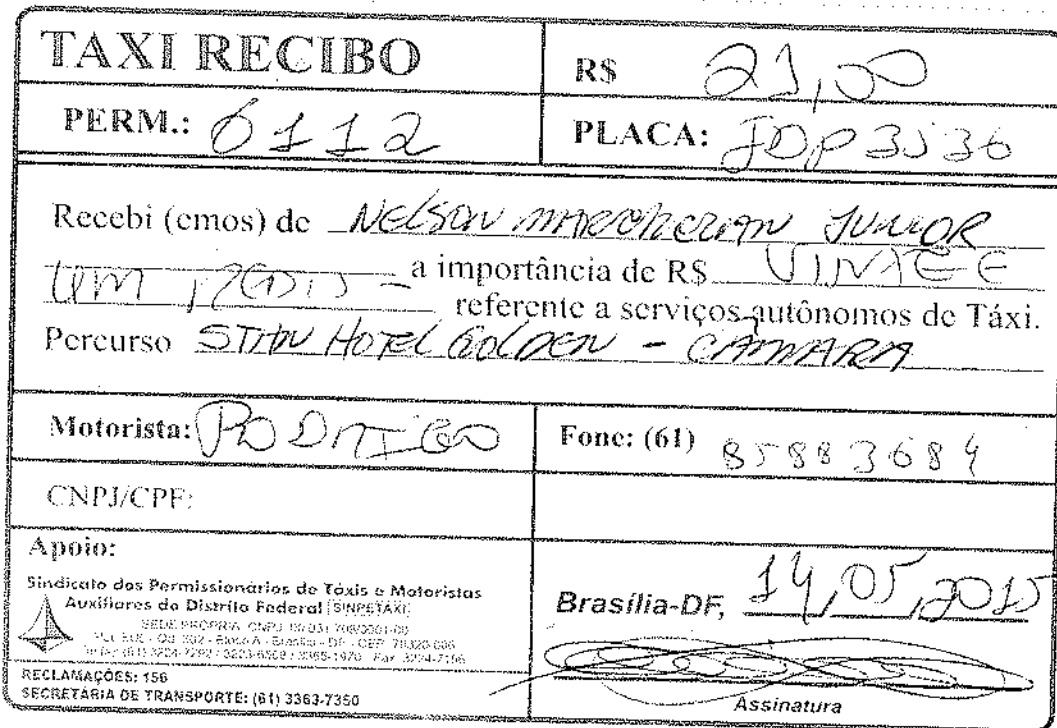 TAXI RECIBO
R$ 21,00
PERM.: 6112
PLACA: JDP 3536
Recebi (emos) de NELSON MARCHEZAN JUNIOR
UM REAIS - a importância de R$ VINTE E
referente a serviços autônomos de Táxi.
Percurso HOTEL GOLDEN - CÂMARA
Motorista: RODRIGO
Fone: (61) 85883684
CNPJ/CPF:
Apoio:
Sindicato dos Permissionários de Táxis e Motoristas
Auxiliares do Distrito Federal SINPETAXI
SEDE PRÓPRIA CNPJ
RECLAMAÇÕES: 156
SECRETÁRIA DE TRANSPORTE: (61) 3363-7350
Brasília-DF, 14,05,2015
Assinatura